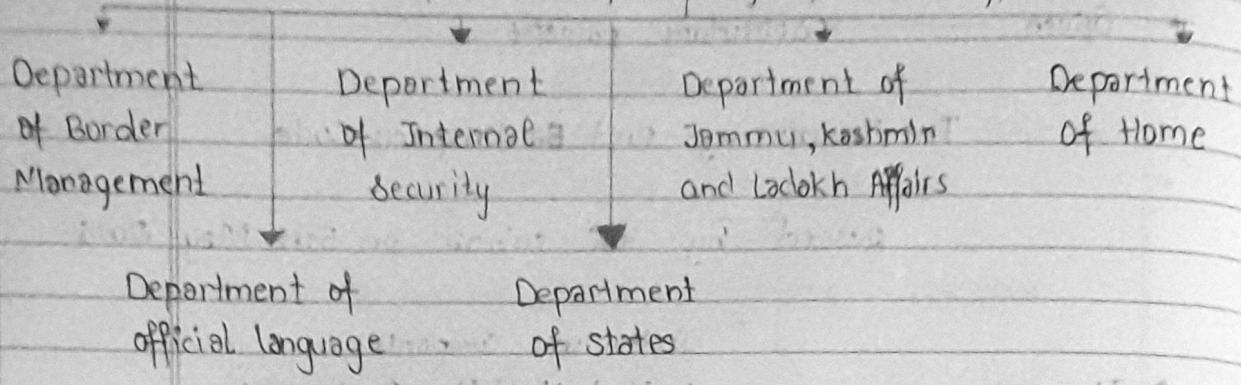 Department
of Border
Management
Department
of Internal
Security
Department of
Jammu, Kashmir
and Ladakh Affairs
Department
of Home
Department of
official language
Department
of states